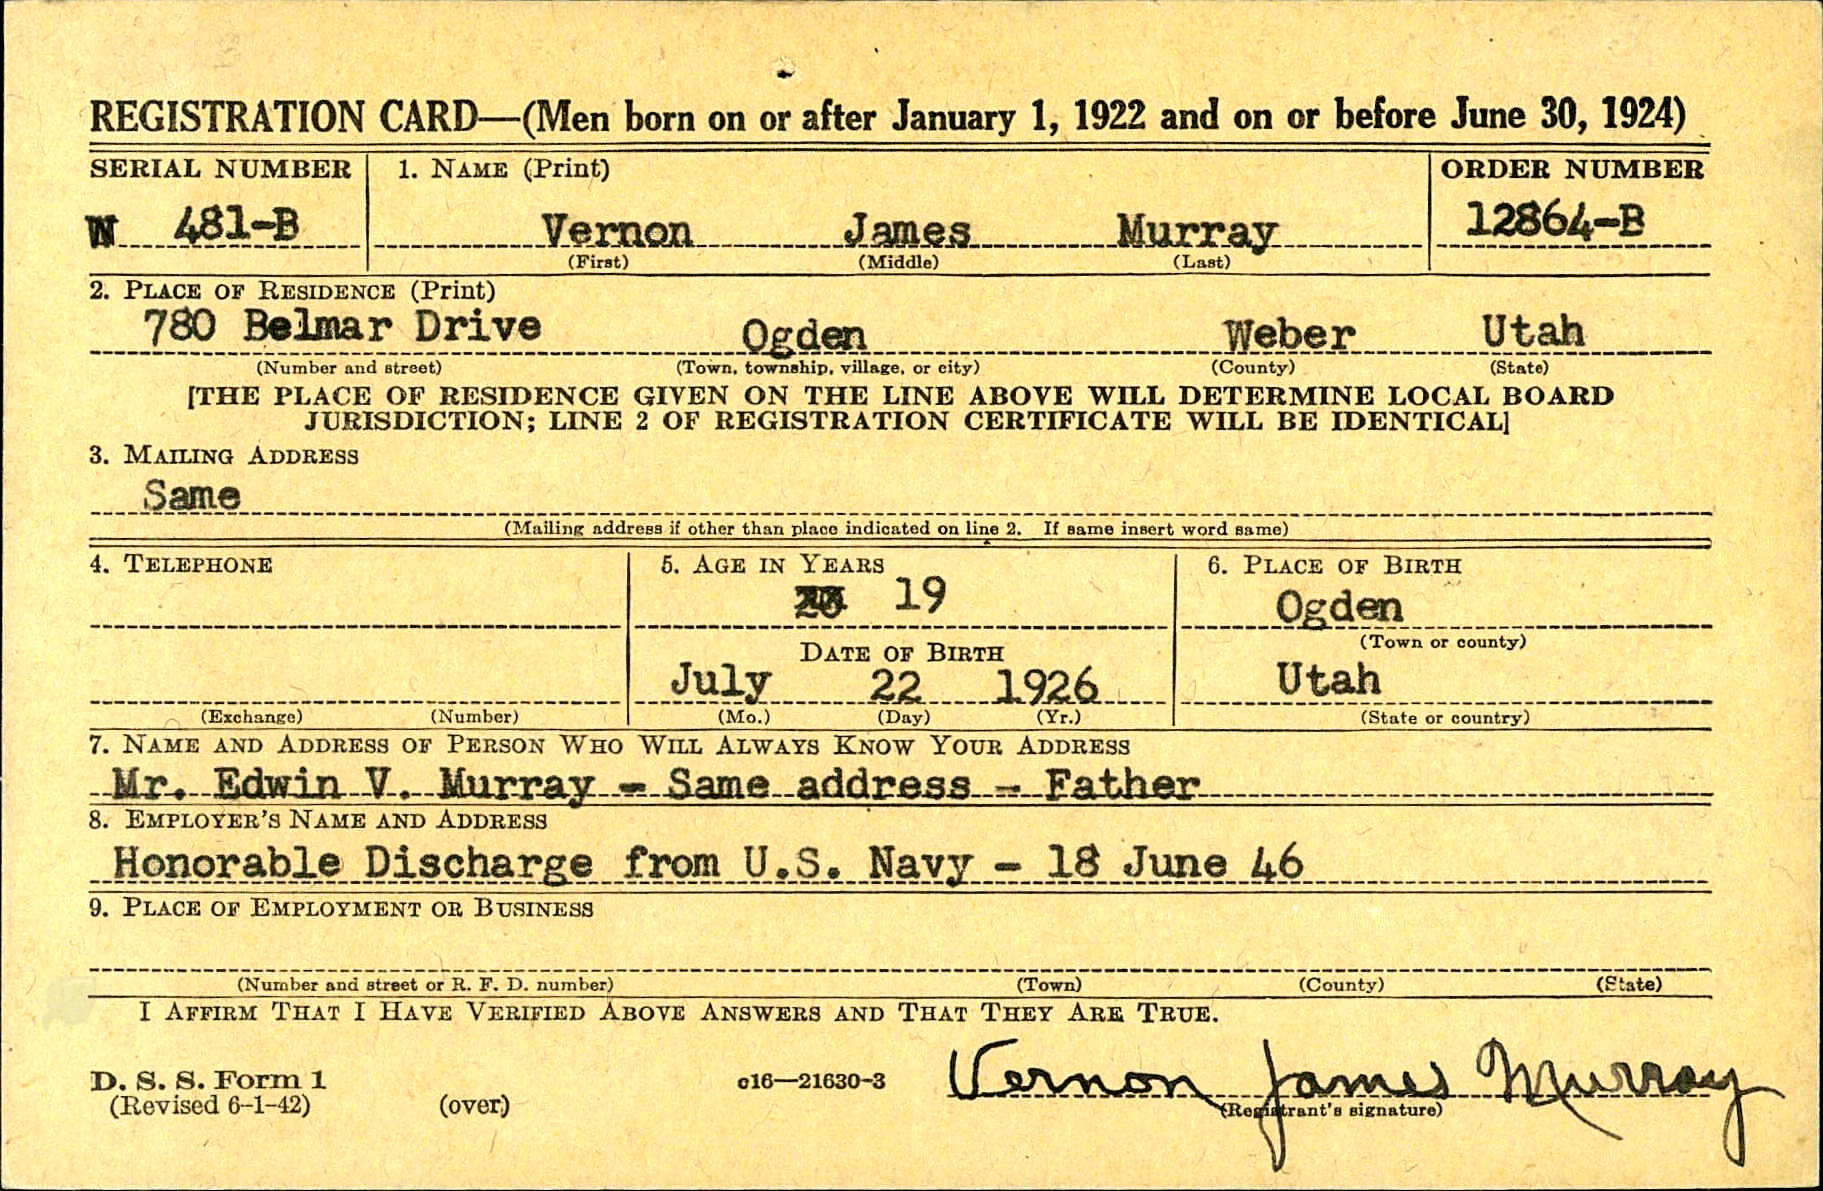 REGISTRATION CARD—(Men born on or after January 1, 1922 and on or before June 30, 1924)
SERIAL NUMBER 1. NAME (Print) ORDER NUMBER
W 481-B Vernon James Murray 12864-B
(First) (Middle) (Last)
2. PLACE OF RESIDENCE (Print)
780 Belmar Drive Ogden Weber Utah
(Number and street) (Town, township, village, or city) (County) (State)
[THE PLACE OF RESIDENCE GIVEN ON THE LINE ABOVE WILL DETERMINE LOCAL BOARD
JURISDICTION; LINE 2 OF REGISTRATION CERTIFICATE WILL BE IDENTICAL]
3. MAILING ADDRESS
Same
(Mailing address if other than place indicated on line 2. If same insert word same)
4. TELEPHONE 5. AGE IN YEARS 6. PLACE OF BIRTH
19 Ogden
(Town or county)
DATE OF BIRTH
July 22 1926 Utah
(Exchange) (Number) (Mo.) (Day) (Yr.) (State or country)
7. NAME AND ADDRESS OF PERSON WHO WILL ALWAYS KNOW YOUR ADDRESS
Mr. Edwin V. Murray - Same address - Father
8. EMPLOYER'S NAME AND ADDRESS
Honorable Discharge from U.S. Navy - 18 June 46
9. PLACE OF EMPLOYMENT OR BUSINESS
(Number and street or R. F. D. number) (Town) (County) (State)
I AFFIRM THAT I HAVE VERIFIED ABOVE ANSWERS AND THAT THEY ARE TRUE.
D. S. S. Form 1 c16—21630-3 Vernon James Murray
(Revised 6-1-42) (over) (Registrant's signature)